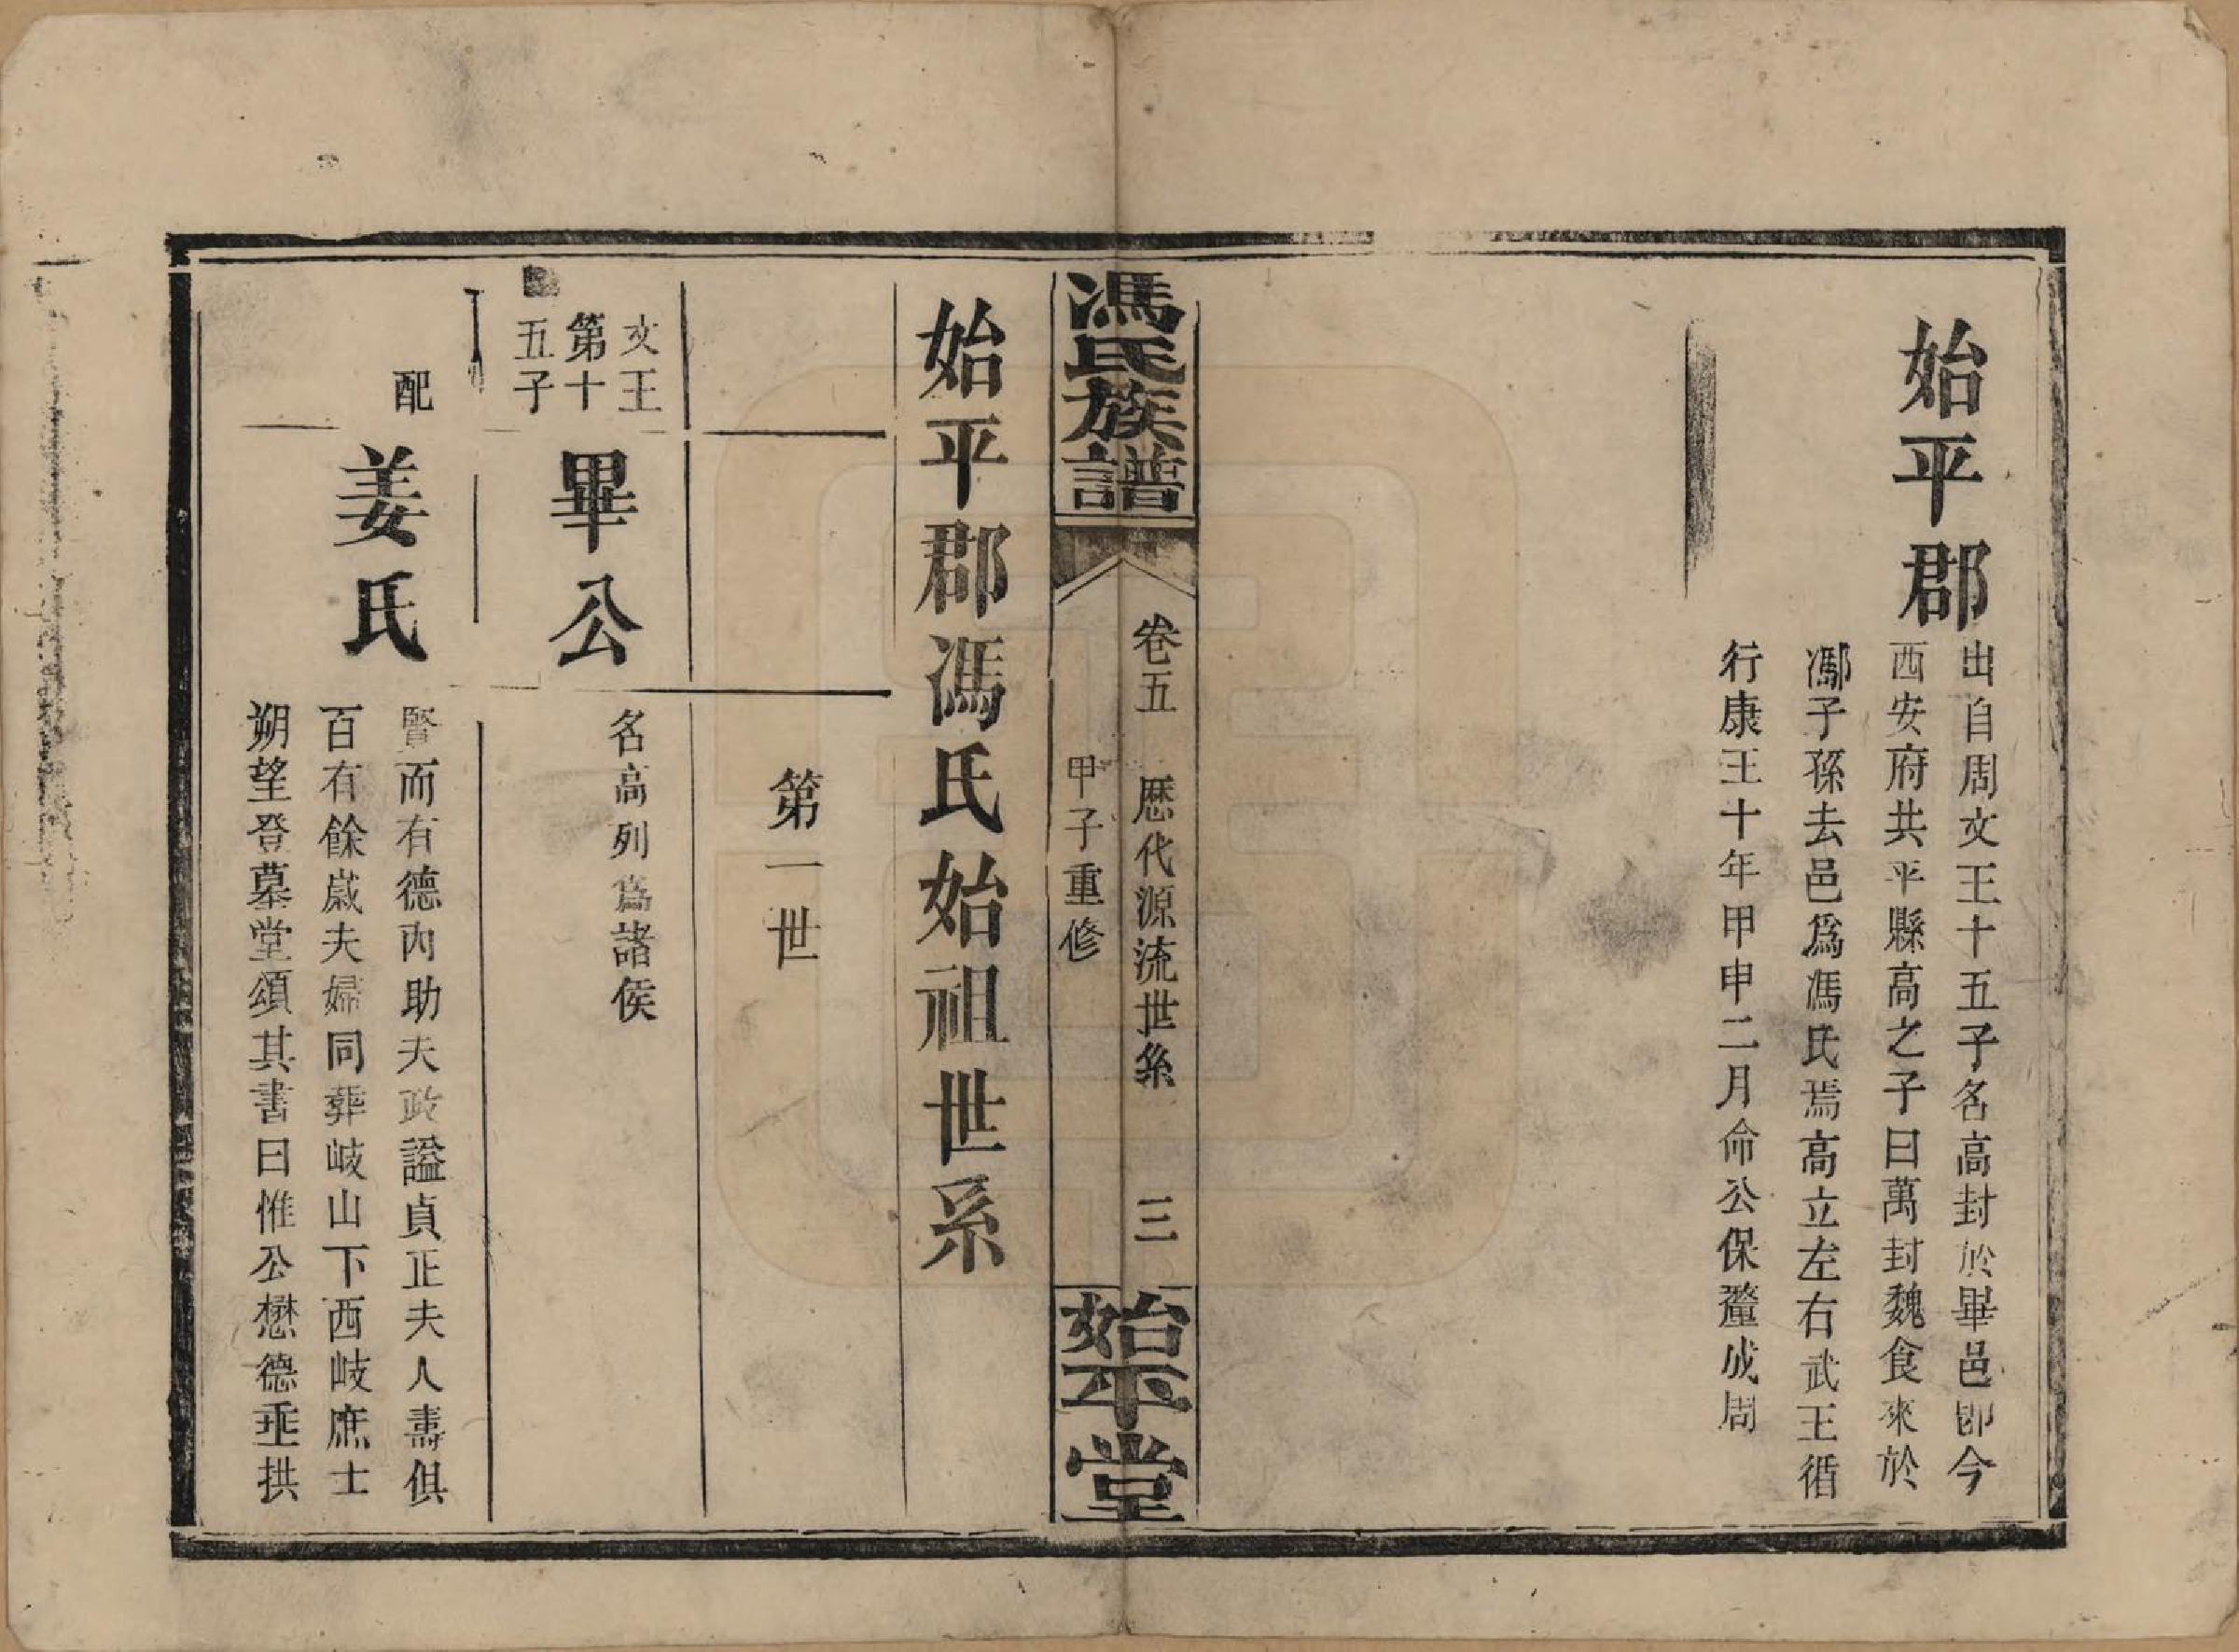 始平郡
出自周文王十五子名高封於畢邑卽今
西安府共平縣高之子曰萬封魏食來於
鄢子孫去邑爲馮氏焉高立左右武王循
行康王十年甲申二月命公保釐成周
馮氏族譜
卷五 歷代源流世系 三
甲子重修
始平堂
始平郡馮氏始祖世系
第一世
文王
第十
五子
畢公
名高列爲諸侯
配
姜氏
賢而有德內助夫政謚貞正夫人壽俱
百有餘歲夫婦同葬岐山下西岐庶士
朔望登墓堂頌其書曰惟公懋德垂拱